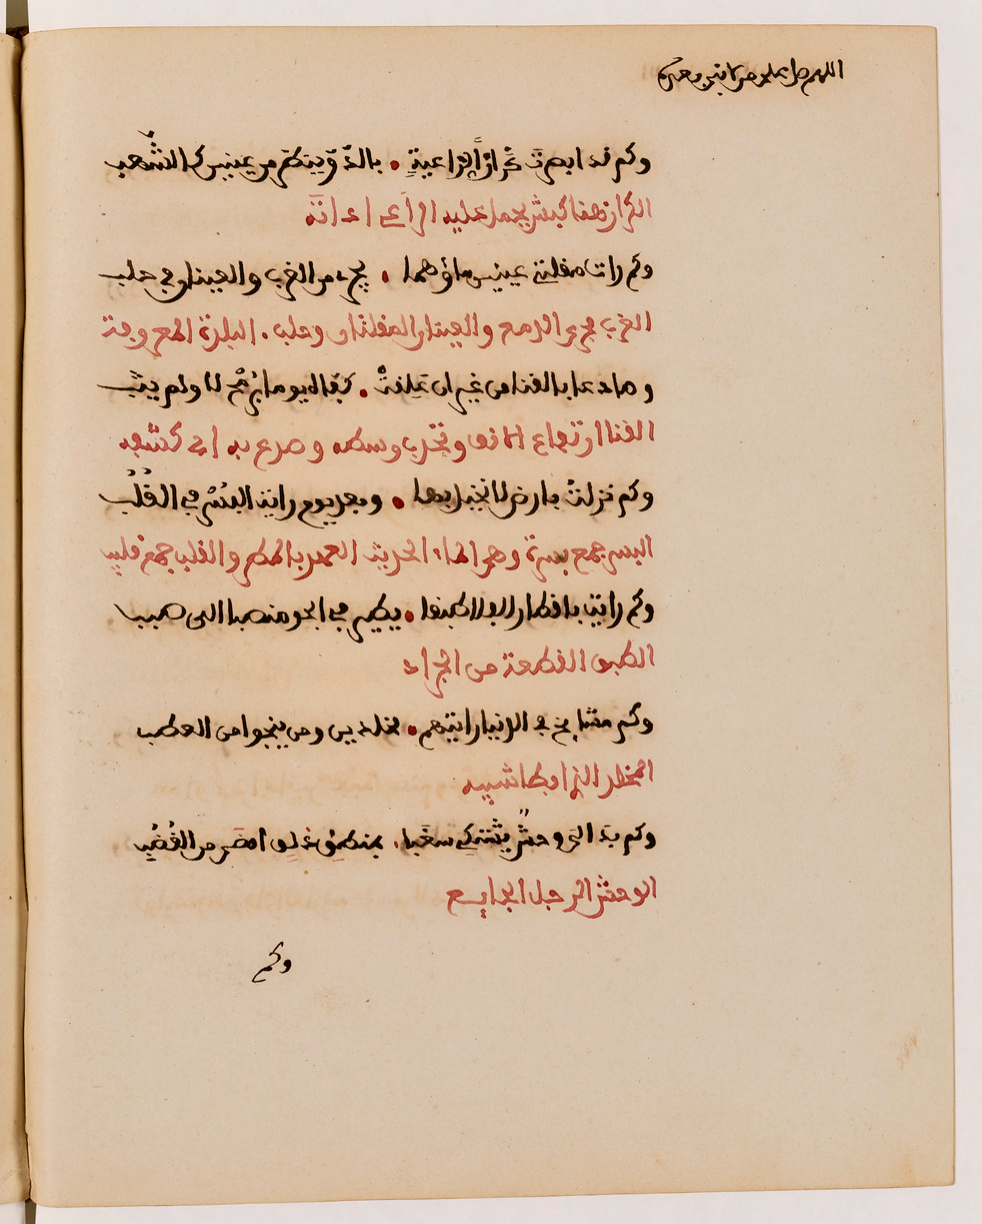 اللهم صل على من لا نبي بعده
وكم قد ابصرت كرازا لراعية • بالدو ينظر من عينين كالشهب
الكراز هنا كبش يحمل عليه الراعي اداته
وكم رات مقلتي عينين ماؤهما • يجري من الغرب والعينان في حلب
الغرب مجرى الدمع والعينان المقلتان وحلب البلدة المعروفة
وصادعا بالقنا من غير ان علقت • كفاه يوما برمح لا ولم يثب
القنا ارتفاع الانف وتحدب وسطه وصدع به اي كشفه
وكم نزلت بارض لا نخيل بها • وبعد يوم رايت البسر في القلب
البسر جمع بسرة وهو الماء الحديث العهد بالمطر والقلب جمع قليب
وكم رايت باقطار الفلا طبقا • يطير في الجو منصبا الى صبب
الطبق القطعة من الجراد
وكم مشايخ في الدنيا رايتهم • مخلدين ومن ينجوا من العطب
المخلد الذي ابطا شيبه
وكم بدا لي وحش يشتكي سغبا • بمنطق ذلق امضى من القضب
الوحش الرجل الجايع
وكم